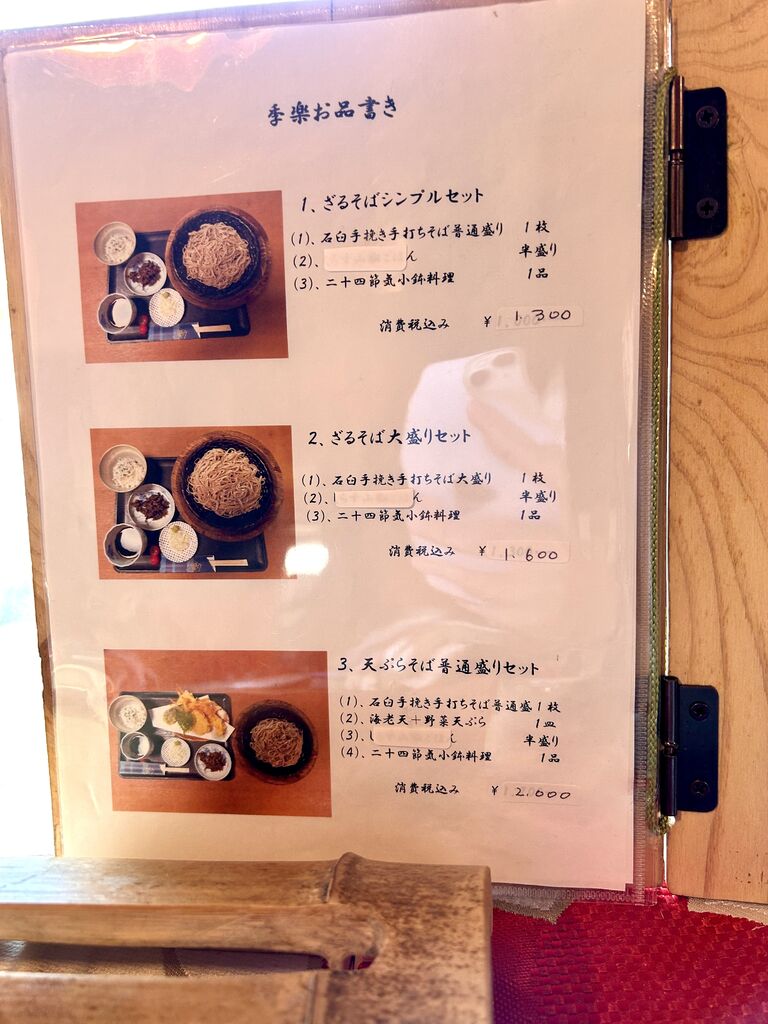 季楽お品書き
1、ざるそばシンプルセット
(1)、石臼手挽き手打ちそば普通盛り 1枚
(2)、 ん 半盛り
(3)、二十四節気小鉢料理 1品
消費税込み ¥ 1.300
2、ざるそば大盛りセット
(1)、石臼手挽き手打ちそば大盛り 1枚
(2)、 ん 半盛り
(3)、二十四節気小鉢料理 1品
消費税込み ¥ 1.600
3、天ぷらそば普通盛りセット
(1)、石臼手挽き手打ちそば普通盛 1枚
(2)、海老天+野菜天ぷら 1皿
(3)、 ん 半盛り
(4)、二十四節気小鉢料理 1品
消費税込み ¥ 2.600